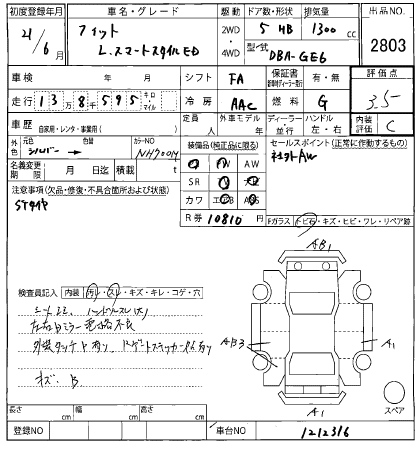 初度登録年月 車名・グレード 駆動 ドア数・形状 排気量 出品NO.
21/6 フィット 2WD・4WD 5 HB 1300 cc 2803
L.スマートスタイルED 型式 DBA-GE6
車検 年 月 シフト FA 保証書 有・無 評価点
走行 13万8千595 キロ マイル 冷房 AAC 燃料 G 3.5
車歴 自家用・レンタ・事業用( ) 定員 人 外車モデル 年 ディーラー・並行 ハンドル 左・右 内装評価 C
外色 元色 シルバー 色替 カラーNO NH700M 装備品(純正品に限る) セールスポイント(正常に作動するもの)
名義変更期限 月 日 積載 t PW AW 社外AW
注意事項(欠品・修復・不具合箇所および状態) SR
カワ
R券 10810 円 Fガラス トビ石・キズ・ヒビ・ワレ・リペア跡
検査員記入 内装 汚れ・スレ・キズ・キレ・コゲ・穴 AB1
シートスレ ハンドルスレ
左右ドアミラー 不良 AB3 A1
外装タッチ下有り
キズ、B
A1 スペア
長さ cm 幅 cm 高さ cm
登録NO 車台NO 1212316